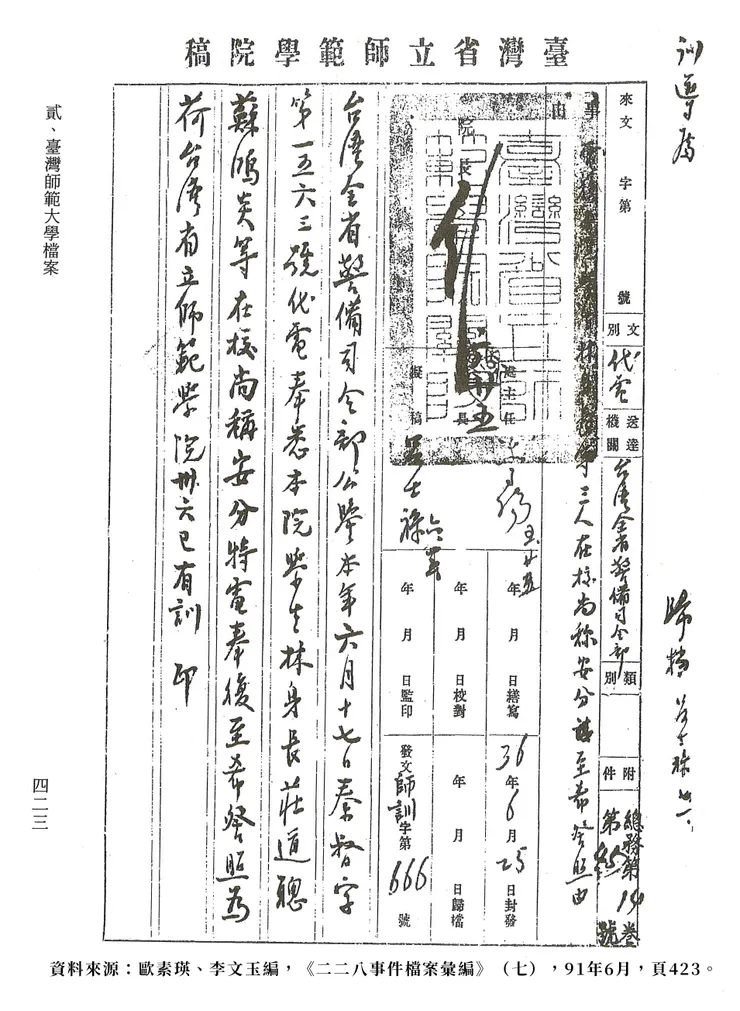 臺灣省立師範學院稿
訓導處
歸檔
來文 字第 號
文別 代電
送達機關 台灣全省警備司令部
類別
附件
總務第 卷
第 號
事由
等三人在校尚称安分 至希詧照由
院長
主任
長
擬稿
年 月 日繕寫
年 月 日校對
年 月 日監印
36年6月25日封發
年 月 日歸檔
發文師訓字第666號
台灣全省警備司令部公鑒本年六月十七日秦督字
第一五六三號代電奉悉本院學生林身長莊道聰
蘇鴻炎等在校尚稱安分特電奉復至希詧照為
荷台灣省立師範學院卅六巳有訓印
貳、臺灣師範大學檔案
四二三
資料來源：歐素瑛、李文玉編，《二二八事件檔案彙編》（七），91年6月，頁423。